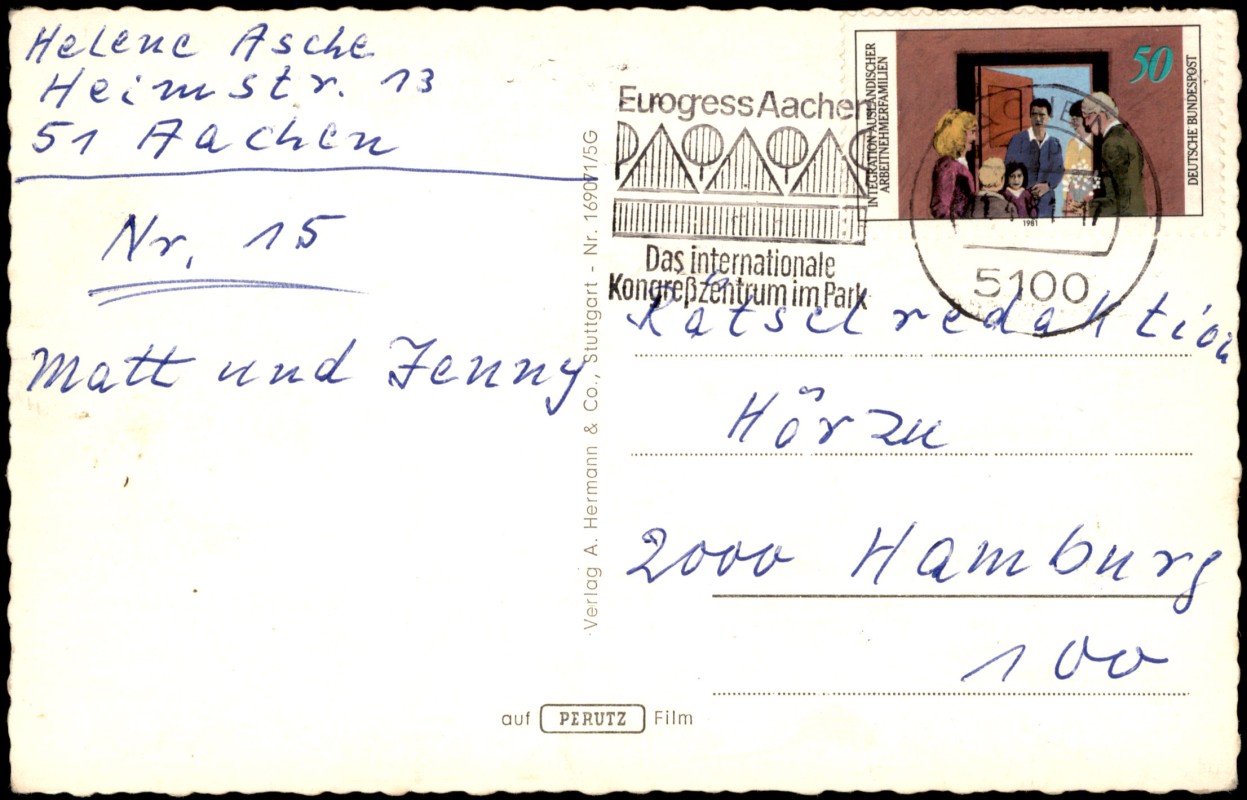 Helene Asche
Heimstr. 13
51 Aachen
Nr. 15
Matt und Jenny
Verlag A. Hermann & Co., Stuttgart - Nr. 169071/5G
Eurogress Aachen
Das internationale
Kongreßzentrum im Park
INTEGRATION AUSLÄNDISCHER
ARBEITNEHMERFAMILIEN
50
DEUTSCHE BUNDESPOST
1981
5100
Rätselredaktion
Hörzu
2000 Hamburg
100
auf PERUTZ Film